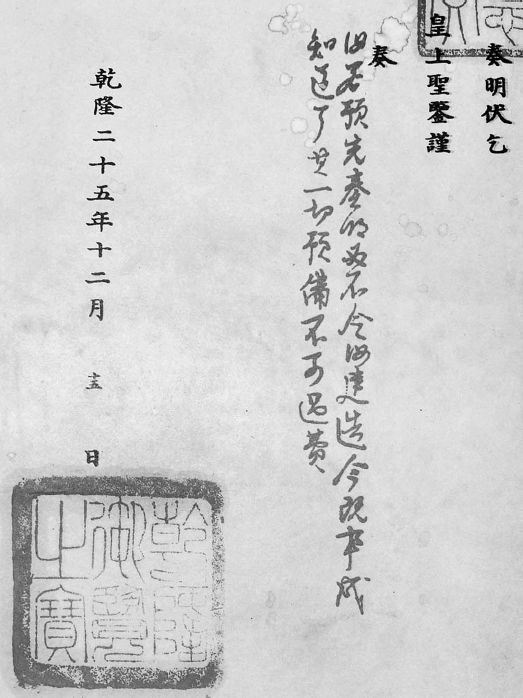 奏明伏乞
皇上聖鑒謹
奏
汝若預先奏明必不令汝建造今既事成
知道了其一切預備不可過費
乾隆二十五年十二月 十五 日
乾隆
御覽
之寶